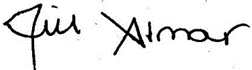 Jill Aimar